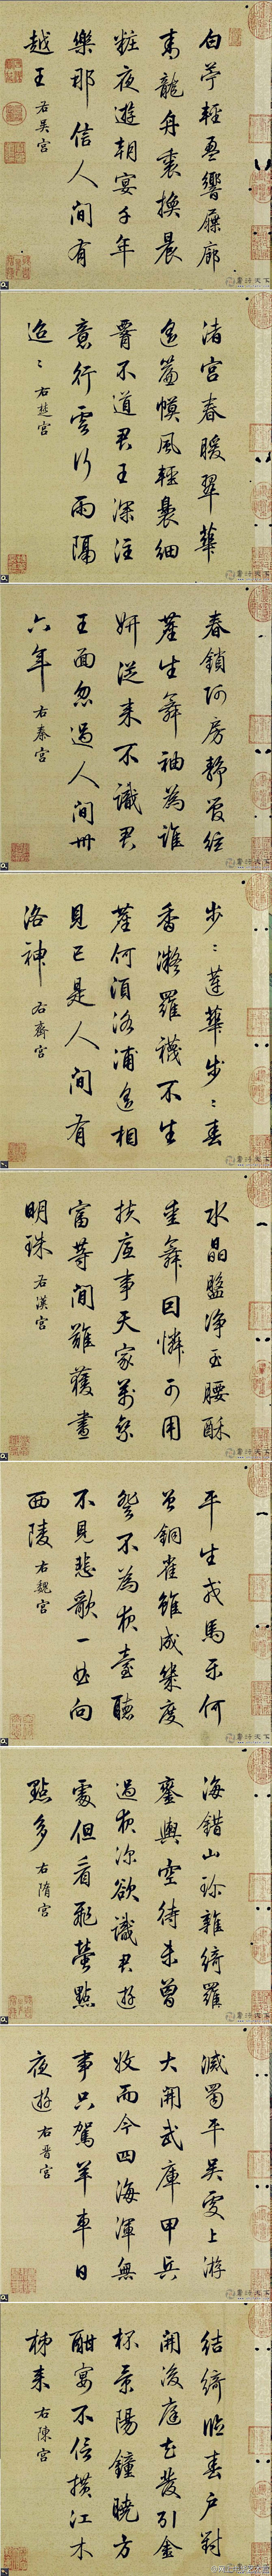 白苧輕盈響屧廊
青龍舟裏換晨
粧夜遊朝宴千年
樂那信人間有
越王 右吳宮
渚宮春暖翠華
遙簾幙風輕裊細
腰不道君王深注
意行雲行雨隔
迢〃 右楚宮
春鎖阿房靜管絃
塵生舞袖為誰
妍從來不識君
王面忽過人間卅
六年 右秦宮
步〃蓮華步〃春
香凝羅襪不生
塵何須洛浦遙相
見已是人間有
洛神 右齊宮
水晶盤淨玉腰酥
垂舞因憐可用
扶底事天家萬乘
富等閒難獲晝
明珠 右漢宮
平生戎馬樂何
曾銅雀雖成幾度
登不為夜臺聽
不見悲歌一曲向
西陵 右魏宮
海錯山珍雜綺羅
鑾輿空待未曾
過夜深欲識君遊
處但看飛螢點
點多 右隋宮
滅蜀平吳更上游
大開武庫甲兵
收而今四海渾無
事只駕羊車日
夜遊 右晉宮
結綺臨春戶對
開後庭花發引金
杯景陽鐘曉方
酣宴不信橫江木
柹來 右陳宮